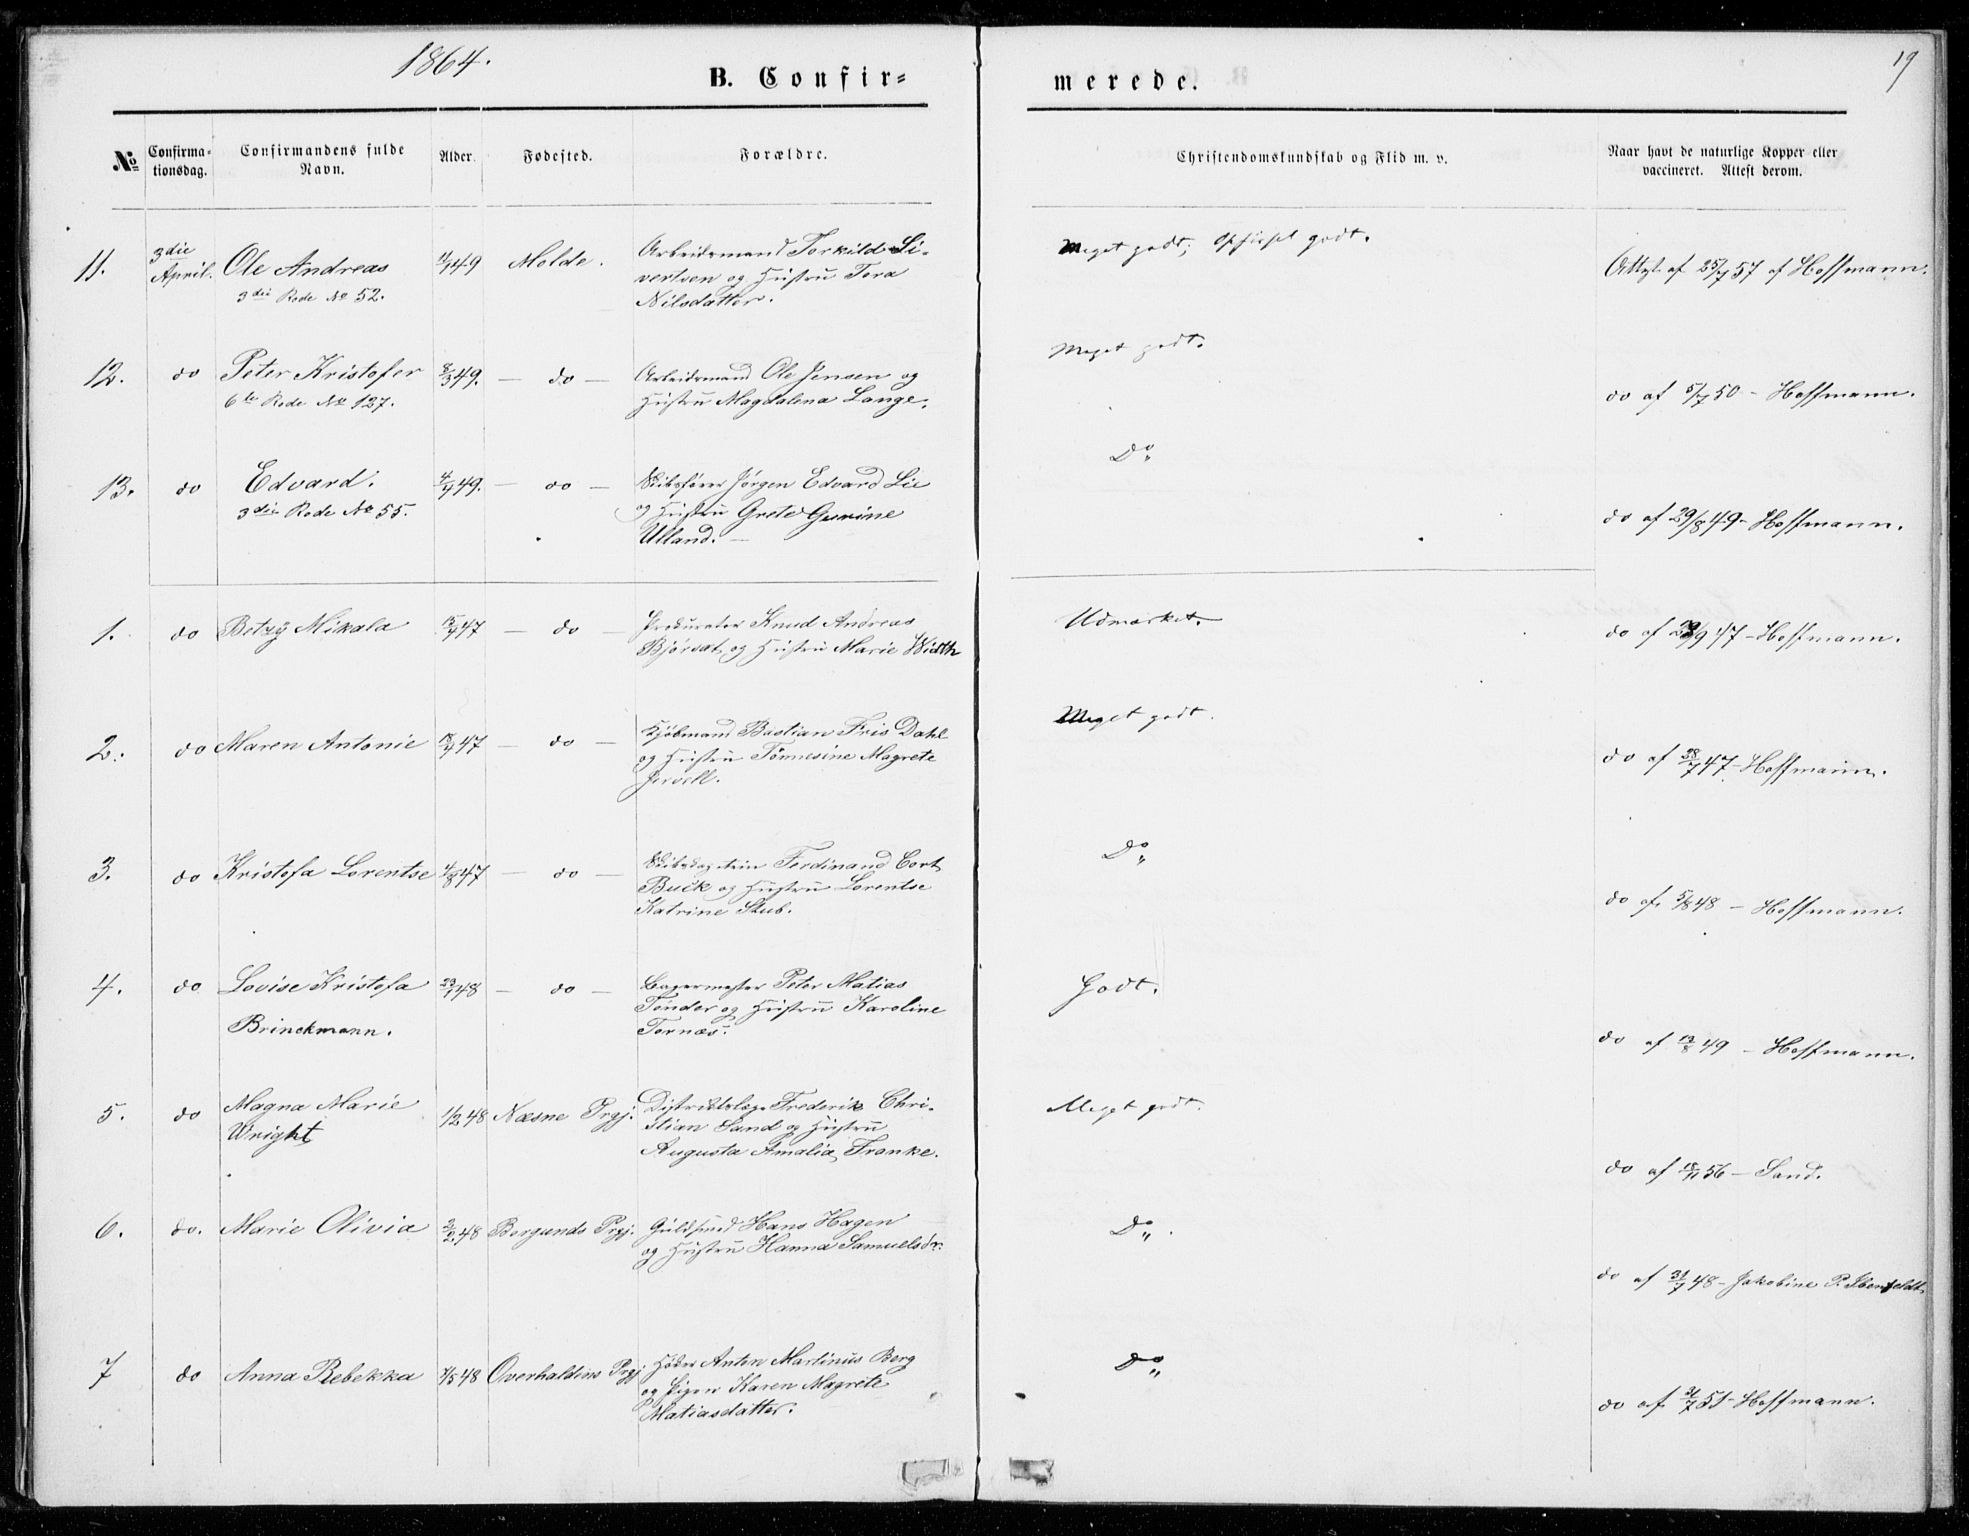 1864.
19
B. Confir=
merede.
No
Confirma=
tionsdag.
Confirmandens fulde
Navn.
Alder.
Fødested.
Forældre.
Christendomskundskab og Flid m. v.
Naar havt de naturlige Kopper eller
vaccineret. Attest derom.
11. 3die April. Ole Andreas 49 Molde. Arbeidsmand Torkild Si-
3die Rode No 52. vertsen og Hustru Tora
Nilsdatter.
Meget godt; Opførsel godt.
Attest af 25/7 57 af Hoffmann.
12. do Peter Kristofer 8/3 49. - do - Arbeidsmand Ole Jensen og
6te Rode No 127. Hustru Magdalena Lange.
Meget godt.
do af 5/7 50 - Hoffmann.
13. do Edvard. 49. - do - Skibsfører Jørgen Edvard Lie
3die Rode No 55. og Hustru Grete Gurine
Ulland. -
Do
do af 29/8 49 - Hoffmann.
1. do Betzy Mikala 47 - do - Procurator Knud Andreas
Bjørset og Hustru Marie Width
Udmærket.
do af 9 47 - Hoffmann.
2. do Maren Antonie 47 - do - Kjøbmand Bastian Fris Dahl
og Hustru Tönnesine Magrete
Jervell.
Meget godt.
do af 28/7 47 - Hoffmann.
3. do Kristofa Lorentse 4/8 47 - do - Ferdinand Cort
Buck og Hustru Lorentse
Katrine Stub.
Do
do af 5/8 48 - Hoffmann.
4. do Lovise Kristofa 48 - do - Bagermester Peter Matias
Brinckmann. Tönder og Hustru Karoline
Tornæs.
Godt.
do af 12/8 49 - Hoffmann.
5. do Magna Marie 1/2 48 Næsne Prgj. Distriktslæge Frederik Chri-
Wright stian Sand og Hustru
Augusta Amalia Franke.
Meget godt.
do af 18/11 56 - Sand.
6. do. Marie Olivia 2/2 48 Borgunds Prgj. Guldsmed Hans Hagen
og Hustru Hanna Samuelsdr.
Do
do af 31/7 48 - Jakobine P.
7 do Anna Rebekka 4/5 48 Overhaldens Prgj Anton Martinus Berg
og Pigen Karen Magrete
Matiasdatter.
Do
do af 31/7 51 - Hoffmann.